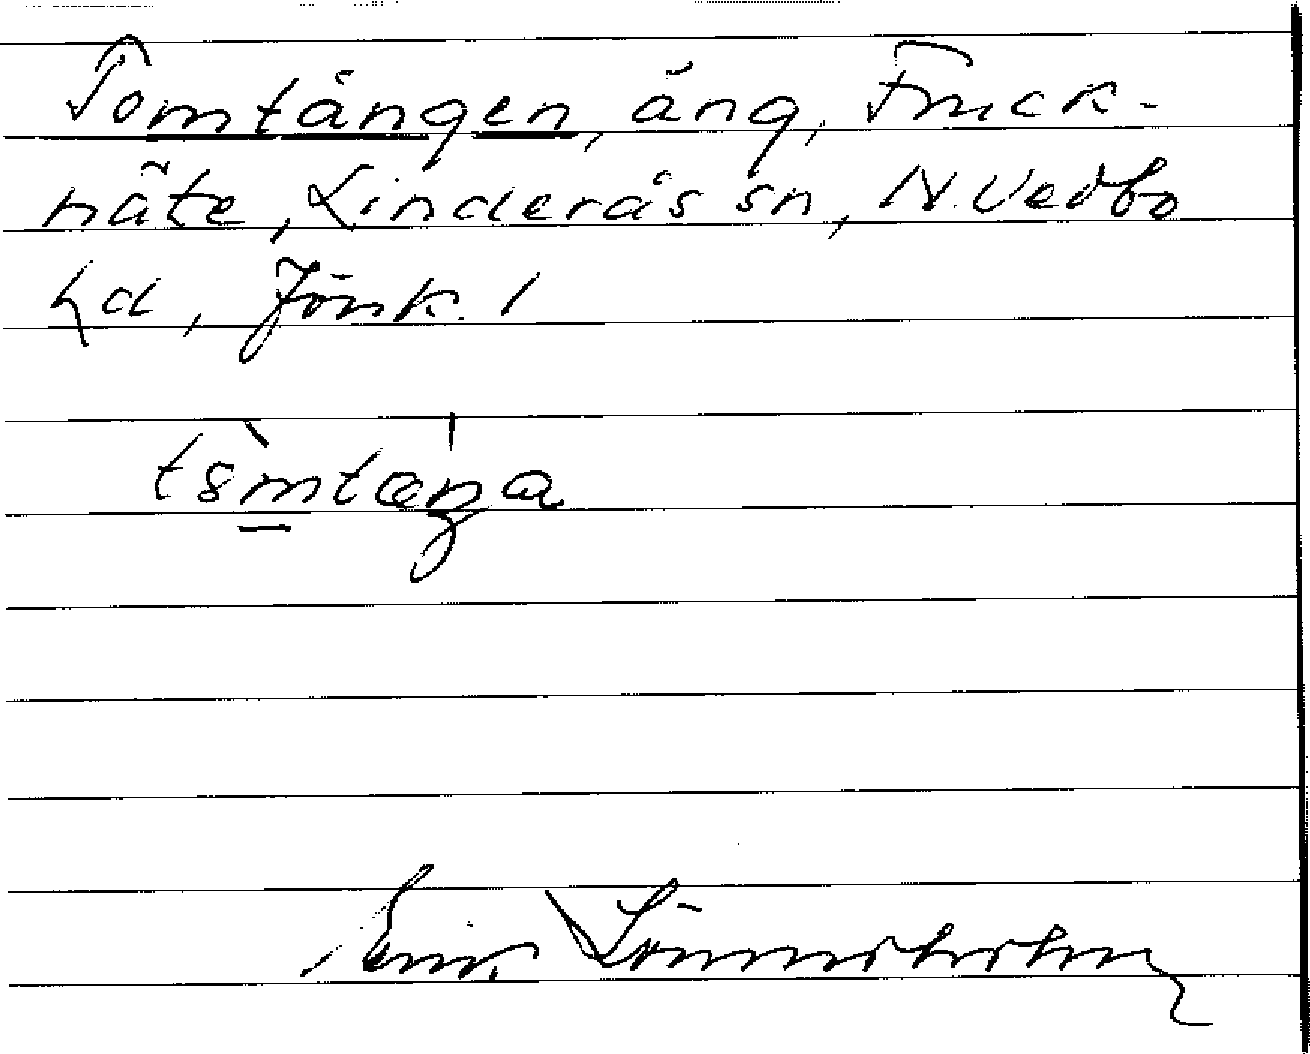 Tomtängen, äng, Fruck-
näte, Linderås sn, N. Vedbo
hd, Jönk. l
Erik